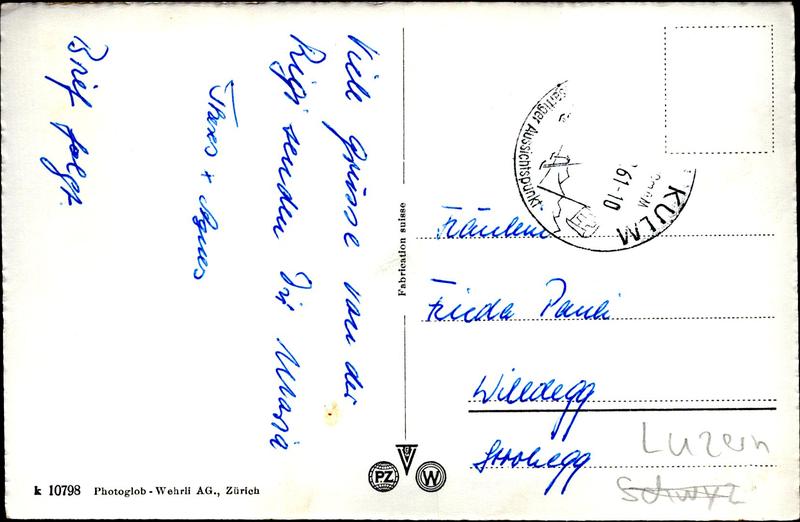 Viele Grüsse von der
Rigi senden Dir Maria
Theres + Agnes
Brief folgt.
Fabrication suisse
KULM
61-10
artiger Aussichtspunkt
Fräulein
Frieda Pauli
Willdegg
Luzern
Schwyz
PZ
W
k 10798 Photoglob - Wehrli AG., Zürich